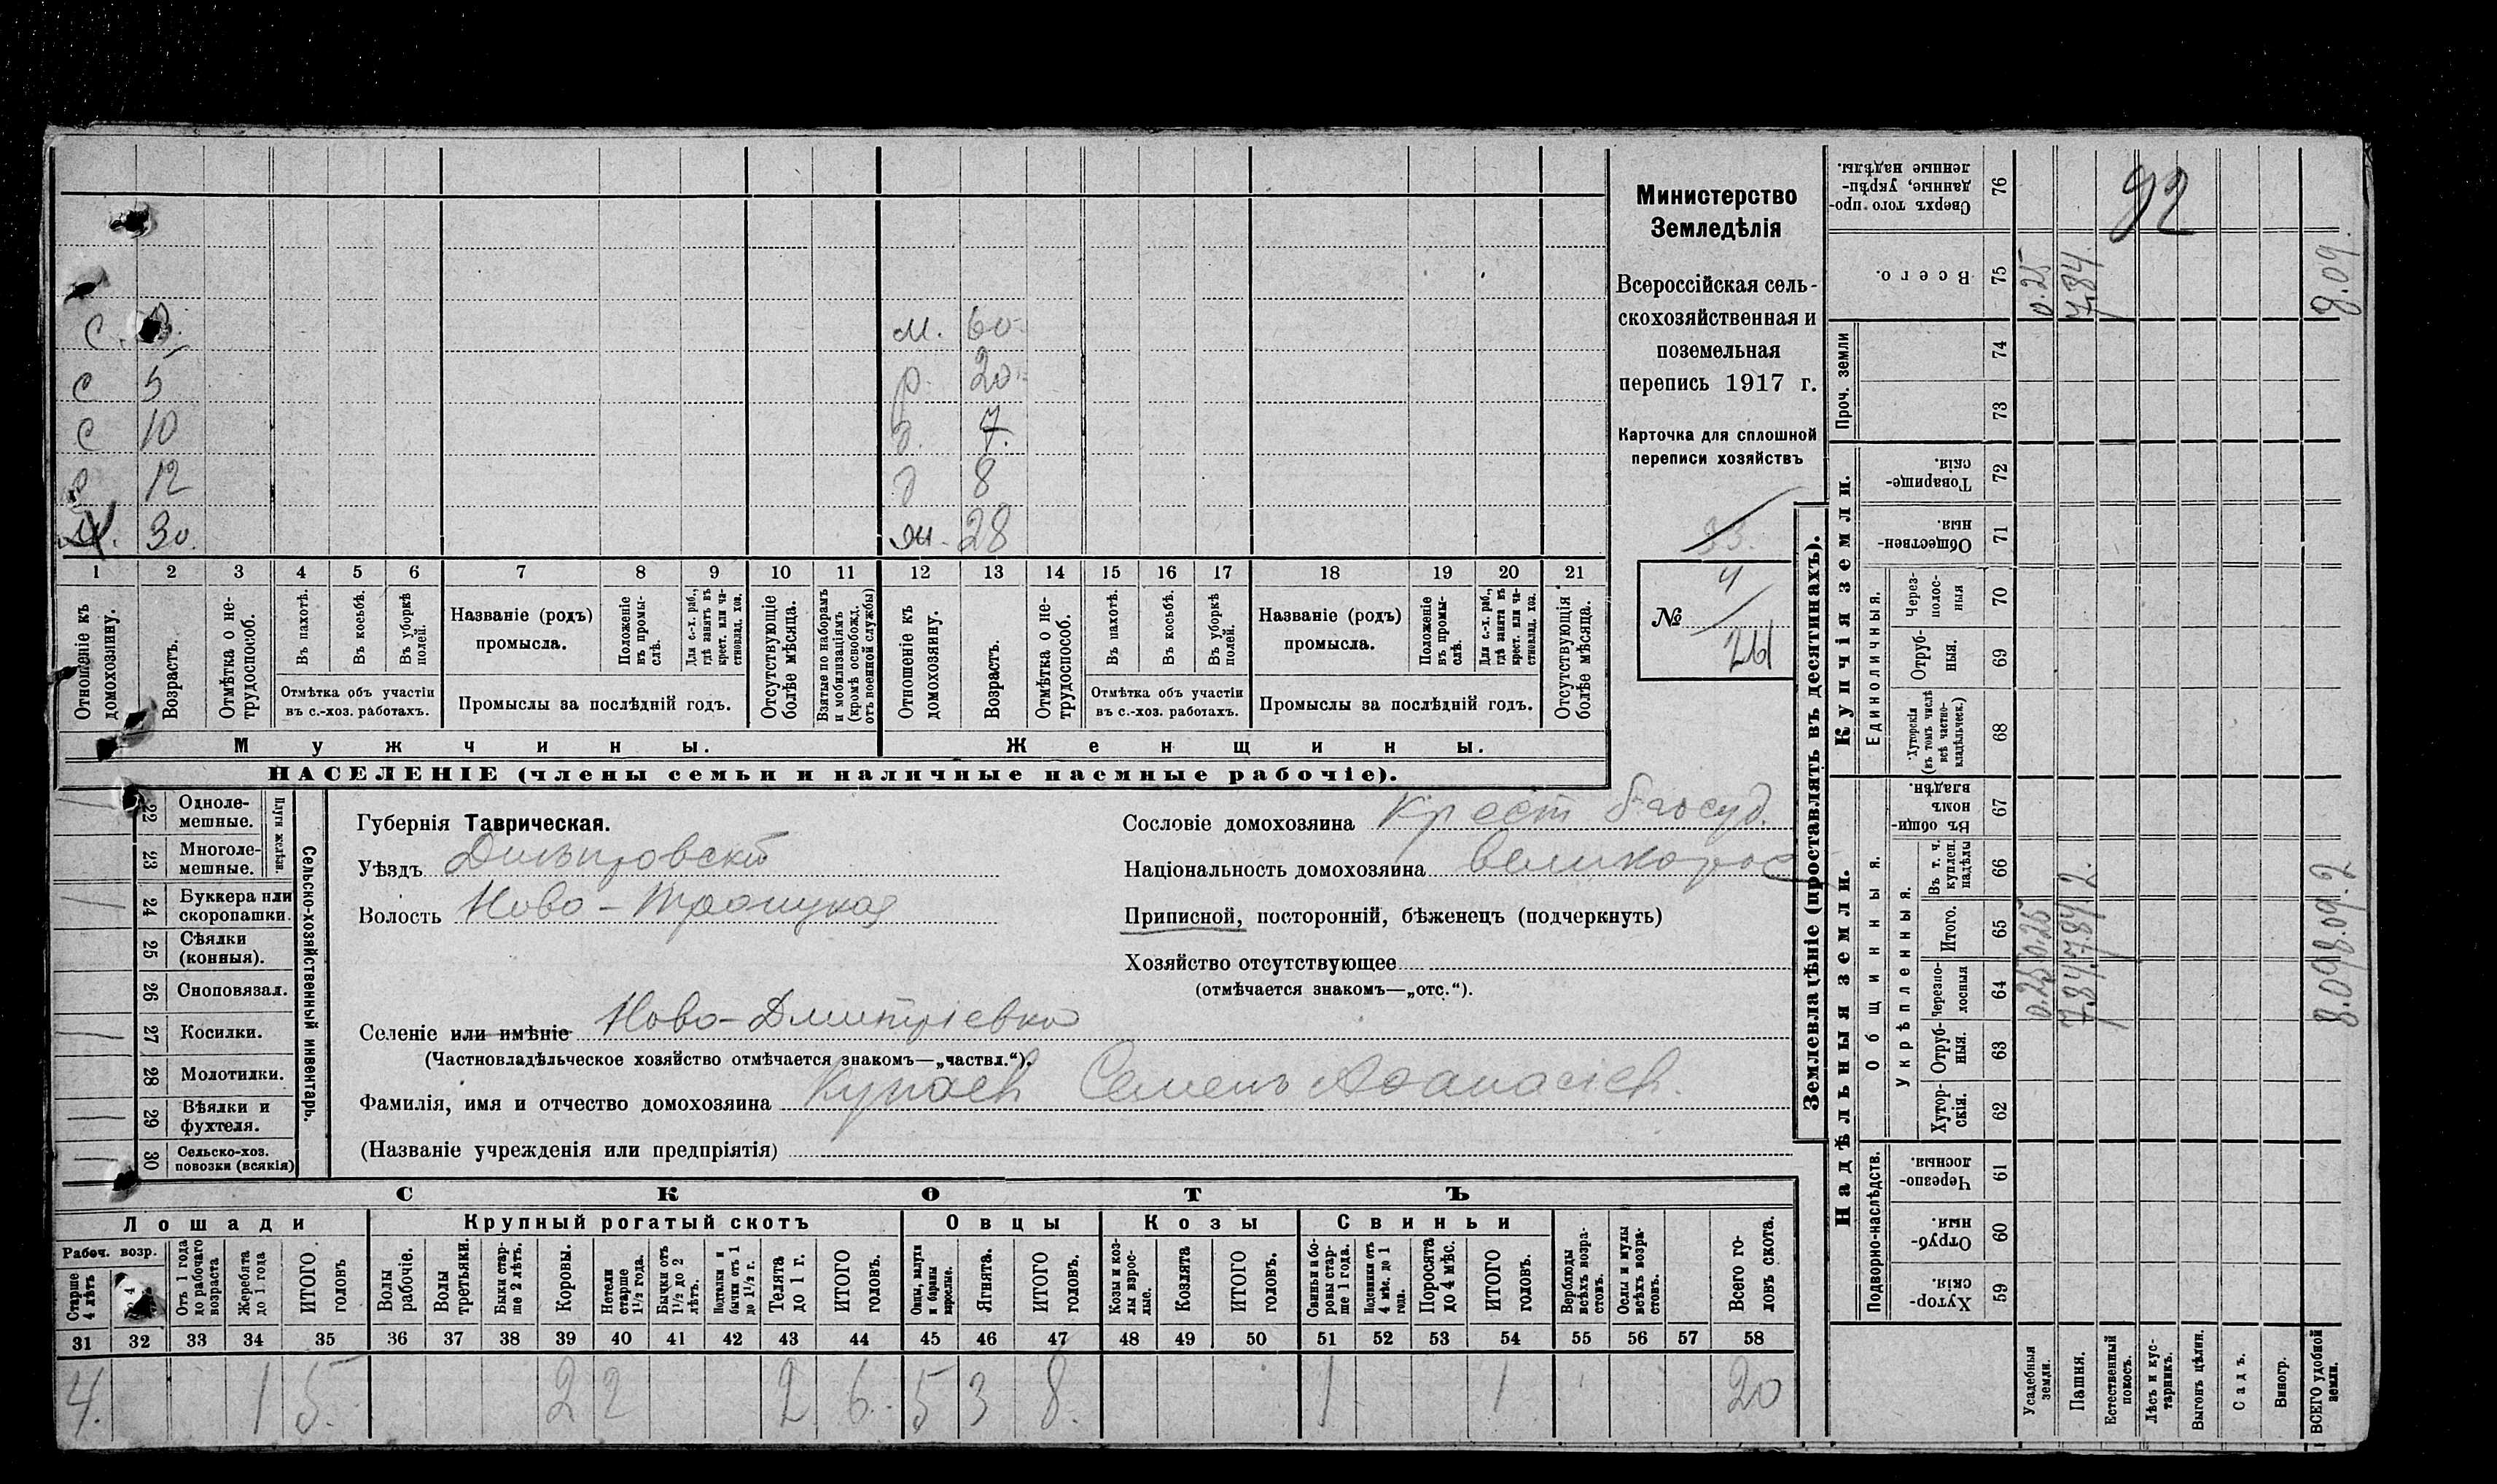 Министерство
Земледѣлія
Всероссійская сель-
скохозяйственная и
поземельная
перепись 1917 г.
Карточка для сплошной
переписи хозяйствъ
33.
№ 4
92
С.
м. 60.
С 5
р. 20.
С 10
д. 7.
12
д 8
30.
ж. 28
1 2 3 4 5 6 7 8 9 10 11 12 13 14 15 16 17 18 19 20 21
Отношеніе къ домохозяину.
Возрастъ.
Отмѣтка о не-
трудоспособ.
Въ пахотѣ.
Въ косьбѣ.
Въ уборкѣ полей.
Отмѣтка объ участіи
въ с.-хоз. работахъ.
Названіе (родъ)
промысла.
Положеніе въ промы-
слѣ.
Для с.-х. раб.,
гдѣ занятъ въ
крест. или ча-
стновлад. хоз.
Промыслы за послѣдній годъ.
Отсутствующіе
болѣе мѣсяца.
Взятые по наборамъ
и мобилизаціямъ
(кромѣ освобожд.
отъ военной службы)
Отношеніе къ
домохозяину.
Возрастъ.
Отмѣтка о не-
трудоспособ.
Въ пахотѣ.
Въ косьбѣ.
Въ уборкѣ
полей.
Отмѣтка объ участіи
въ с.-хоз. работахъ.
Названіе (родъ)
промысла.
Положеніе
въ промы-
слѣ.
Для с.-х. раб.,
гдѣ занята въ
крест. или ча-
стновлад. хоз.
Промыслы за послѣдній годъ.
Отсутствующія
болѣе мѣсяца.
Мужчины.
Женщины.
НАСЕЛЕНІЕ (члены семьи и наличные наемные рабочіе).
22 Одноле-
мешные.
23 Многоле-
мешные.
Плуги желѣзн.
24 Буккера или
скоропашки.
25 Сѣялки
(конныя).
26 Сноповязал.
27 Косилки.
28 Молотилки.
29 Вѣялки и
фухтеля.
30 Сельско-хоз.
повозки (всякія)
Сельско-хозяйственный инвентарь.
Губернія Таврическая.
Уѣздъ Днѣпровскій
Волость Ново-Троицкая
Селеніе или имѣніе Ново-Дмитріевка
(Частновладѣльческое хозяйство отмѣчается знакомъ—„частвл.“).
Фамилія, имя и отчество домохозяина Семенъ Афанасіев.
(Названіе учрежденія или предпріятія)
Сословіе домохозяина Крест б-госуд.
Національность домохозяина великорос
Приписной, посторонній, бѣженецъ (подчеркнуть)
Хозяйство отсутствующее
(отмѣчается знакомъ—„отс.“).
СКОТЪ
Лошади
Крупный рогатый скотъ
Овцы
Козы
Свиньи
Рабоч. возр.
Старше
4 лѣтъ
Отъ 1 года
до рабочаго
возраста
Жеребята
до 1 года
ИТОГО
головъ
Волы
рабочіе.
Волы
третьяки.
Быки стар-
ше 2 лѣтъ.
Коровы.
Нетели
старше
1½ года.
Бычки отъ
1½ до 2
лѣтъ.
Подтелки и
бычки отъ 1
до 1½ г.
Телята
до 1 г.
ИТОГО
головъ.
Овцы, валухи
и бараны
взрослые.
Ягнята.
ИТОГО
головъ.
Козы и коз-
лы взрос-
лые.
Козлята
ИТОГО
головъ.
Свиньи и бо-
ровы стар-
ше 1 года.
Подсвинки отъ
4 мѣс. до 1
года.
Поросята
до 4 мѣс.
ИТОГО
головъ.
Верблюды
всѣхъ возра-
стовъ.
Ослы и мулы
всѣхъ возра-
стовъ.
Всего го-
ловъ скота.
31 32 33 34 35 36 37 38 39 40 41 42 43 44 45 46 47 48 49 50 51 52 53 54 55 56 57 58
4. 1 5. 2 2 2 6. 5 3 8. 1 1 20
Землевладѣніе (проставлять въ десятинахъ).
Купчія земли.
Надѣльныя земли.
Сверхъ того про-
данные, укрѣп-
ленные надѣлы.
76
Всего.
75
0.25
7.84.
8.09.
Проч. земли
74
73
Товарище-
скія.
72
Обществен-
ныя.
71
Единоличныя.
Через-
полос-
ныя
70
Отруб-
ныя.
69
Хуторскія
(въ томъ числѣ
всѣ частно-
владѣльческ.)
68
Общинныя.
Въ общин-
номъ
владѣн.
67
Укрѣпленныя.
Въ т. ч.
куплен.
надѣлы
66
2.
2
Итого.
65
0.25
7.84
8.09
Черезпо-
лосныя
64
0.25
7.84
8.09
Отруб-
ныя.
63
Хутор-
скія.
62
Подворно-наслѣдств.
Черезпо-
лосныя.
61
Отруб-
ныя.
60
Хутор-
скія.
59
Усадебныя
земли.
Пашня.
Естественный
покосъ.
Лѣсъ и кус-
тарникъ.
Выгонъ цѣлин.
Садъ.
Виногр.
ВСЕГО удобной
земли.